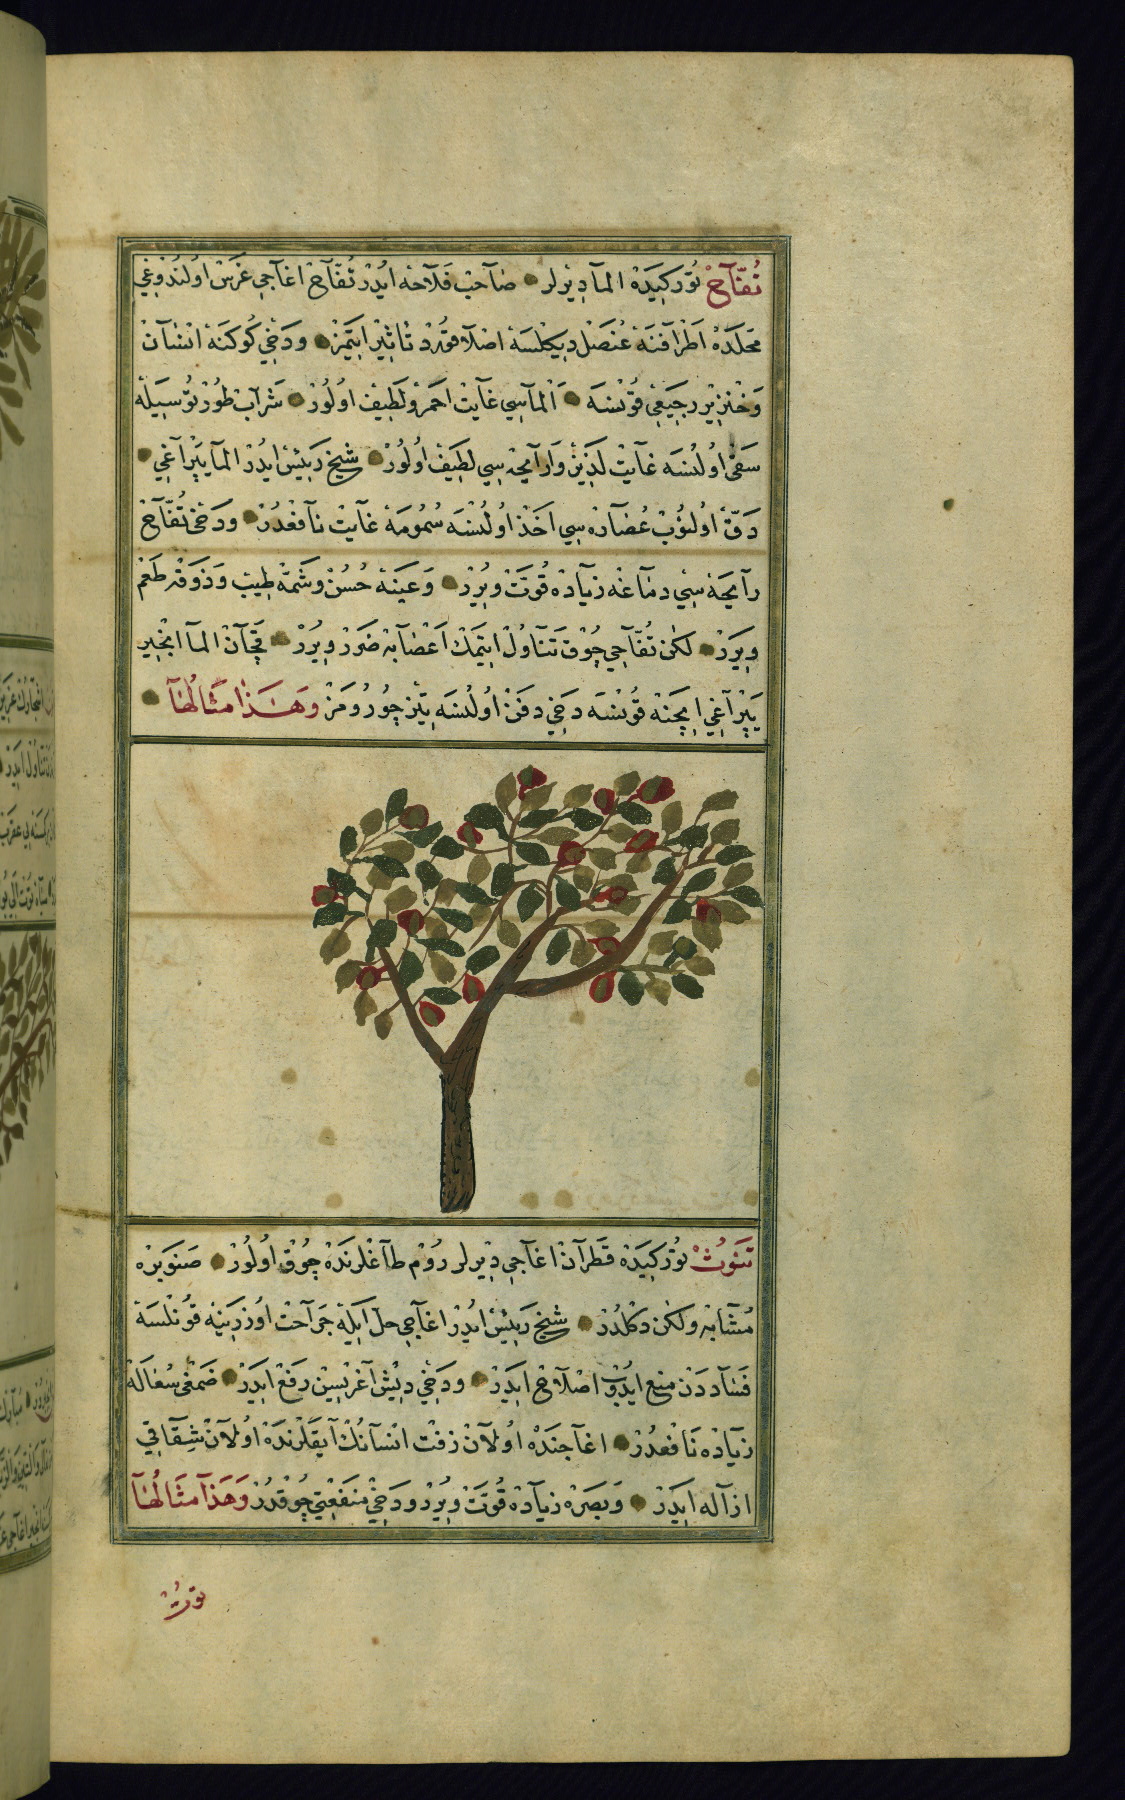 تُفَّاحْ تُوركِيدَهْ الما دِيرلر صَاحبْ فَلَاحَه ايُدرْ تُفَّاحْ اغاجي غَرَسْ اولُندُوغِي
مَحلَدَهْ اطْرافنَهْ عُنصَل دِيكلسَهْ اصْلا قوُرْد تأثِيرْ ايتمَزْ وَدَخِي كُوكنَهْ انسَان
وَخنزيرْ رجيعِي قوُنسَه اَلْماسِي غايتْ احمَرْ ولَطِيفْ اولُورْ شَرابْ طوُرتُو سيلَه
سَقيْ اولُنسَه غايتْ لَذِيذْ ورَايحَه سِي لطِيفْ اولُورْ شيخ رَئيسْ ايُدرْ الما يَپْراغِي
دَقّ اولنوُبْ عُصَارَه سِي اخَذْ اولُنسَه سُمُومَهْ غايتْ نافعْدُرْ ودَخي تُفَّاحْ
رَايحَه سِي دمَاغَه زيَادَه قُوتْ ويُررْ وَعينَهْ حُسُنْ وشَمَّه طِيبْ وَذوقَه طَعْم
ويررْ لكن تُفَّاحِي چُوق تَنَاوُل ايتمَكْ اعْضَايَه ضَررْ ويُررْ قَچانْ الما انْجِير
يَپْراغي ايچنَه قوُنسَه دخي دفَنْ اولُنسَه تيز چُورُومَزْ وَهَذَا مثَالُهَا
تَنوُبْ تُوركيدَه قطْرانْ اغاجي ديرلر رُوم طاغلرنَدَهْ چُوق اولُورْ صَنوبَرَه
مُشَابَه ولكن دكلدُرْ شيخ رَئيسْ ايُدرْ اغاجي حل ايلَه جَرَاحتْ اوزرينَه قوُنلسَهْ
فَسَاددَن منع ايدُوبْ اصْلَاحْ ايدَرْ ودَخي ديشْ اغرِيسِين رَفعْ ايدَرْ صَمغي سُعَالَهْ
زيَادَه نافعْدُرْ اغاجنَدَهْ اولانْ زفتْ انسَانُكْ ايَقلَرنَدَهْ اولانْ شِقَاقي
ازَالَه ايدَرْ وبَصَرَه زيَادَه قُوتْ ويُررْ ودخي مَنفَعَتي چُوقدُرْ وَهَذَا مثَالُهَا
توُتْ